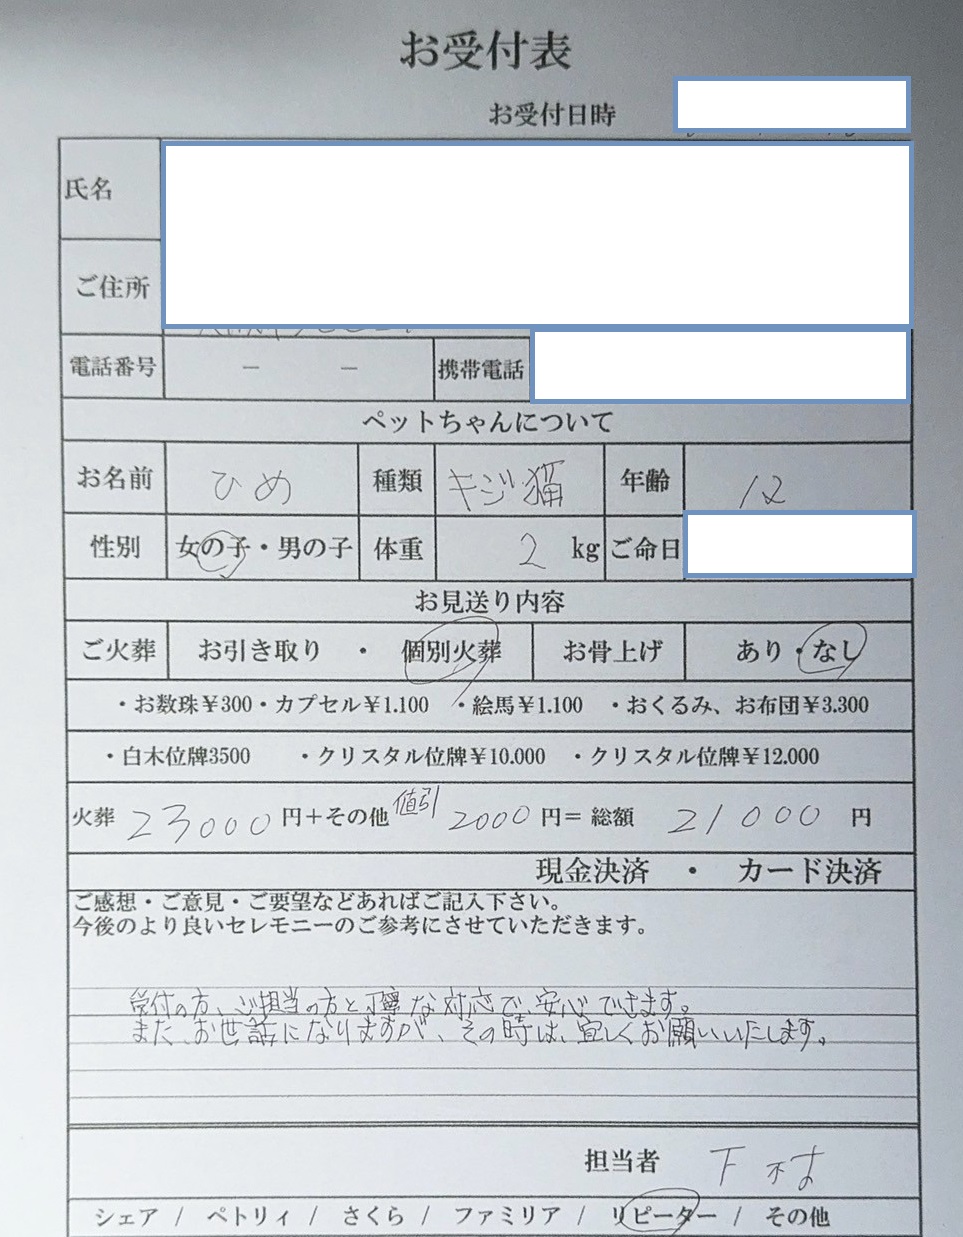 お受付表
お受付日時
氏名
ご住所
電話番号 － － 携帯電話
ペットちゃんについて
お名前 ひめ 種類 キジ猫 年齢 12
性別 女の子・男の子 体重 2 kg ご命日
お見送り内容
ご火葬 お引き取り ・ 個別火葬 お骨上げ あり・なし
・お数珠¥300・カプセル¥1.100 ・絵馬¥1.100 ・おくるみ、お布団¥3.300
・白木位牌3500 ・クリスタル位牌¥10.000 ・クリスタル位牌¥12.000
火葬 23000 円＋その他 値引 2000 円＝ 総額 21000 円
現金決済 ・ カード決済
ご感想・ご意見・ご要望などあればご記入下さい。
今後のより良いセレモニーのご参考にさせていただきます。
受付の方、ご担当の方と丁寧な対応で、安心できます。
また、お世話になりますが、その時は、宜しくお願いいたします。
担当者 下村
シェア / ペトリィ / さくら / ファミリア / リピーター / その他